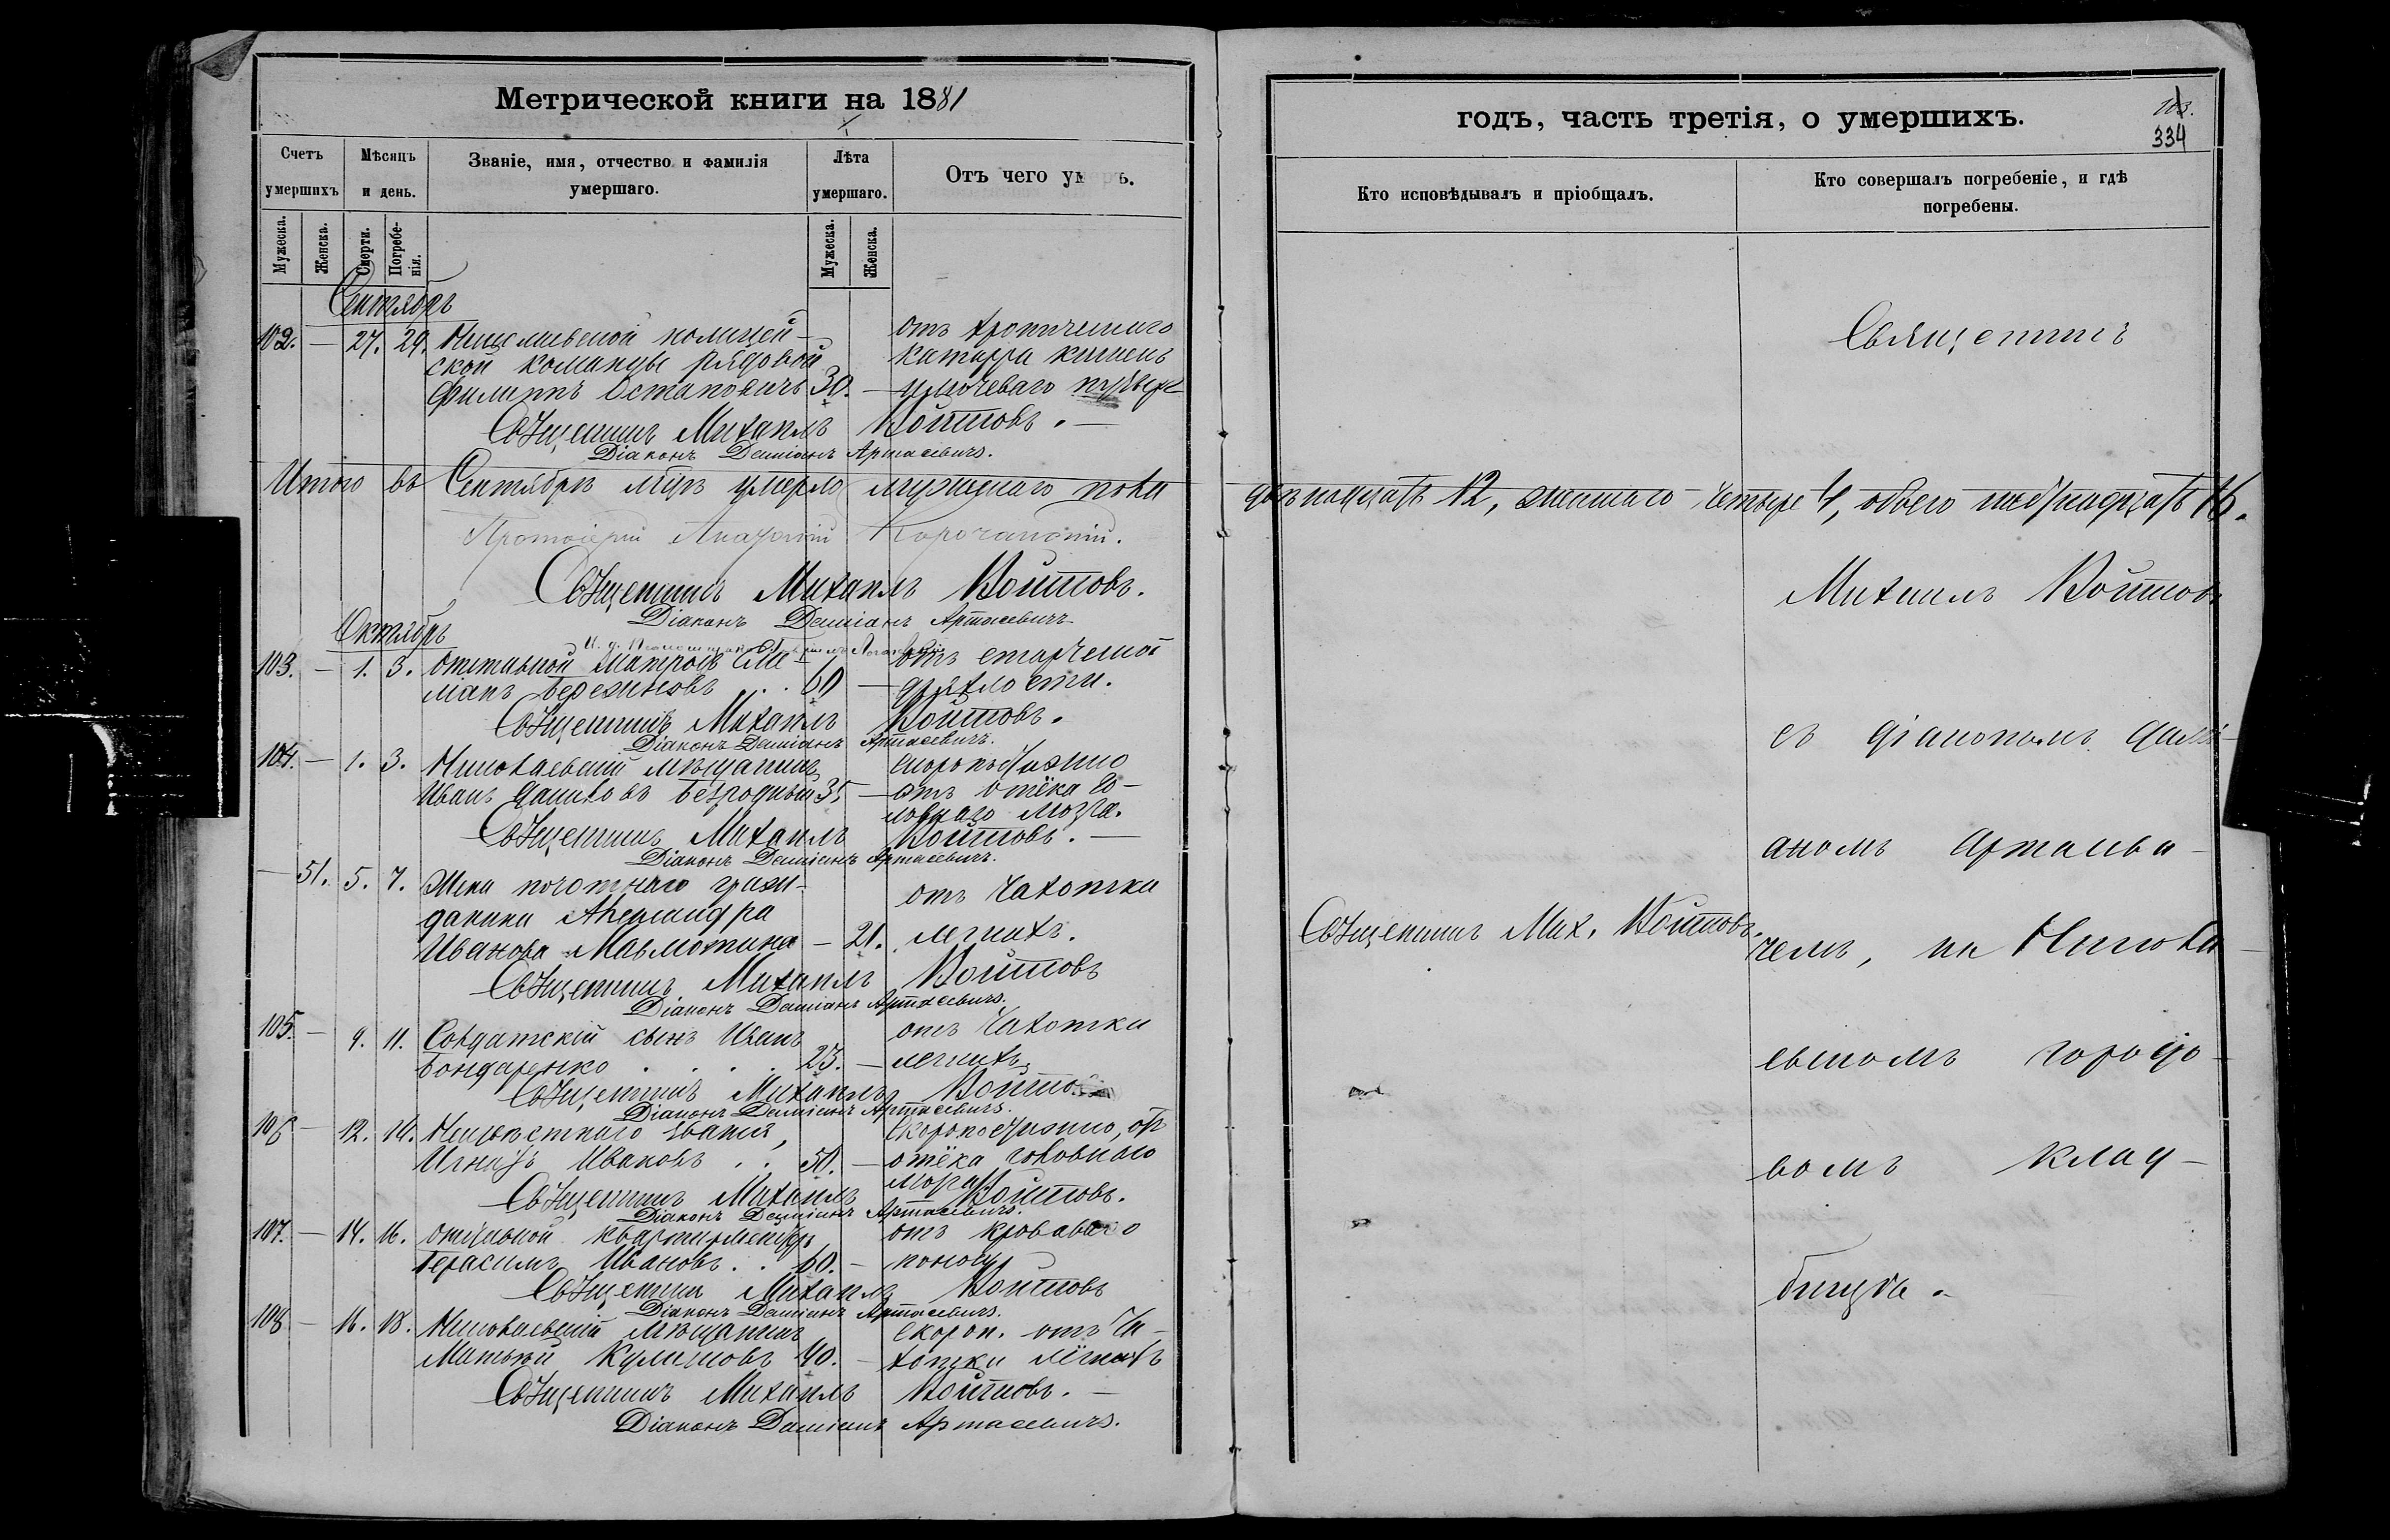 Метрической книги на 1881
Счетъ умершихъ
Мѣсяцъ и день.
Званіе, имя, отчество и фамилія умершаго.
Лѣта умершаго.
Отъ чего ум ръ.
Мужеска.
Женска.
Смерти.
Погребенія.
Мужеска.
Женска.
Сентябрь
102. — 27. 29. Николаевской полицей-
ской команды рядовой
Филиппъ Остаповичъ 30. —
отъ хроническаго
катарра кишекъ
и мочеваго пузыря
Священникъ Михаилъ Войтовъ. —
Діаконъ Даміанъ Артасевичъ.
Итого въ Сентябрѣ м-цѣ умерло мужескаго пола
Протоіерей Корочанскій.
Священникъ Михаилъ Войтовъ.
Діаконъ Даміанъ Артасевичъ
Октябрь
103. — 1. 3. Отставной матросъ
Бережновъ . . 60 —
отъ старческой
дряхлости.
Священникъ Михаилъ Войтовъ.
Діаконъ Даміанъ Артасевичъ.
104. — 1. 3. Николаевскій мѣщанинъ
Иванъ Даниловъ Безродный 35 —
скоропостижно
отъ отёка го-
ловнаго мозга.
Священникъ Михаилъ Войтовъ. —
Діаконъ Даміанъ Артасевичъ.
— 51. 5. 7. Жена почотнаго граж-
данина Александра
Иванова — 21.
отъ чахотки
легкихъ.
Священникъ Михаилъ Войтовъ
Діаконъ Даміанъ Артасевичъ.
105. — 9. 11. Солдатскій сынъ Иванъ
Бондаренко . . . . 23. —
отъ чахотки
легкихъ
Священникъ Михаилъ Войтовъ
Діаконъ Даміанъ Артасевичъ.
106 — 12. 14. Неизвѣстнаго званія,
Игнатъ Ивановъ . . 50. —
Скоропостижно, отъ
отёка головнаго
мозга.
Священникъ Михаилъ Войтовъ.
Діаконъ Даміанъ Артасевичъ.
107. — 14. 16. квартирмейстръ
Герасимъ Ивановъ . . 60. —
отъ кроваваго
поноса
Священникъ Михаилъ Войтовъ
Діаконъ Даміанъ Артасевичъ.
108 — 16. 18. Николаевскій мѣщанинъ
Матвѣй Куликовъ 40. —
Скороп. отъ ча-
хотки лёгкихъ
Священникъ Михаилъ Войтовъ. —
Діаконъ Даміанъ Артасевичъ.
годъ, часть третія, о умершихъ.
103.
334
Кто исповѣдывалъ и пріобщалъ.
Кто совершалъ погребеніе, и гдѣ погребены.
Священникъ
двѣнадцать 12, женскаго четыре 4, обоего шестнадцать 16.
Михаилъ Войтовъ
съ діакономъ Дамі-
аномъ Артасеви-
Священникъ Мих. Войтовъ.
чемъ, на Никола-
евскомъ городо-
вомъ клад-
бищѣ.